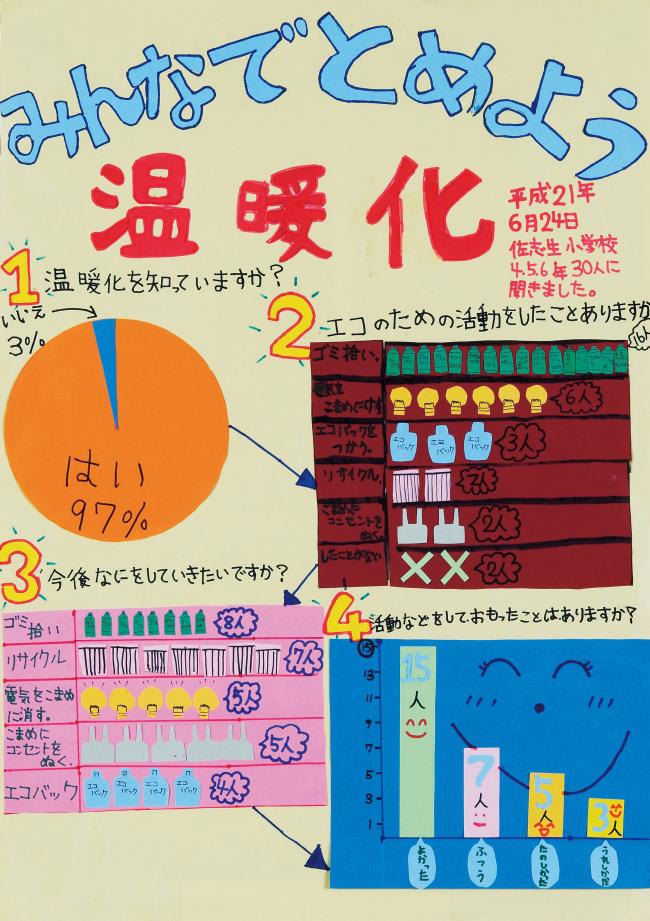 みんなでとめよう
温暖化
平成21年
6月24日
佐志生小学校
4.5.6年30人に
聞きました。
1 温暖化を知っていますか?
いいえ
3%
はい
97%
2 エコのための活動をしたことありますか
ゴミ拾い。
16人
電気を
こまめにけす
6人
エコバックを
つかう。
エコバック
エコバック
エコバック
3人
リサイクル
2人
こまめに
コンセントを
ぬく。
2人
したことがない
2人
3 今後なにをしていきたいですか?
ゴミ
拾い
8人
リサイクル
7人
電気をこまめ
に消す。
5人
こまめに
コンセントを
ぬく。
5人
エコバック
エコバック
エコバック
エコバック
エコバック
4人
4 活動などをしておもったことはありますか?
15
13
11
9
7
5
3
1
15人
7人
5人
3人
よかった
ふつう
たのしかった
うれしかった